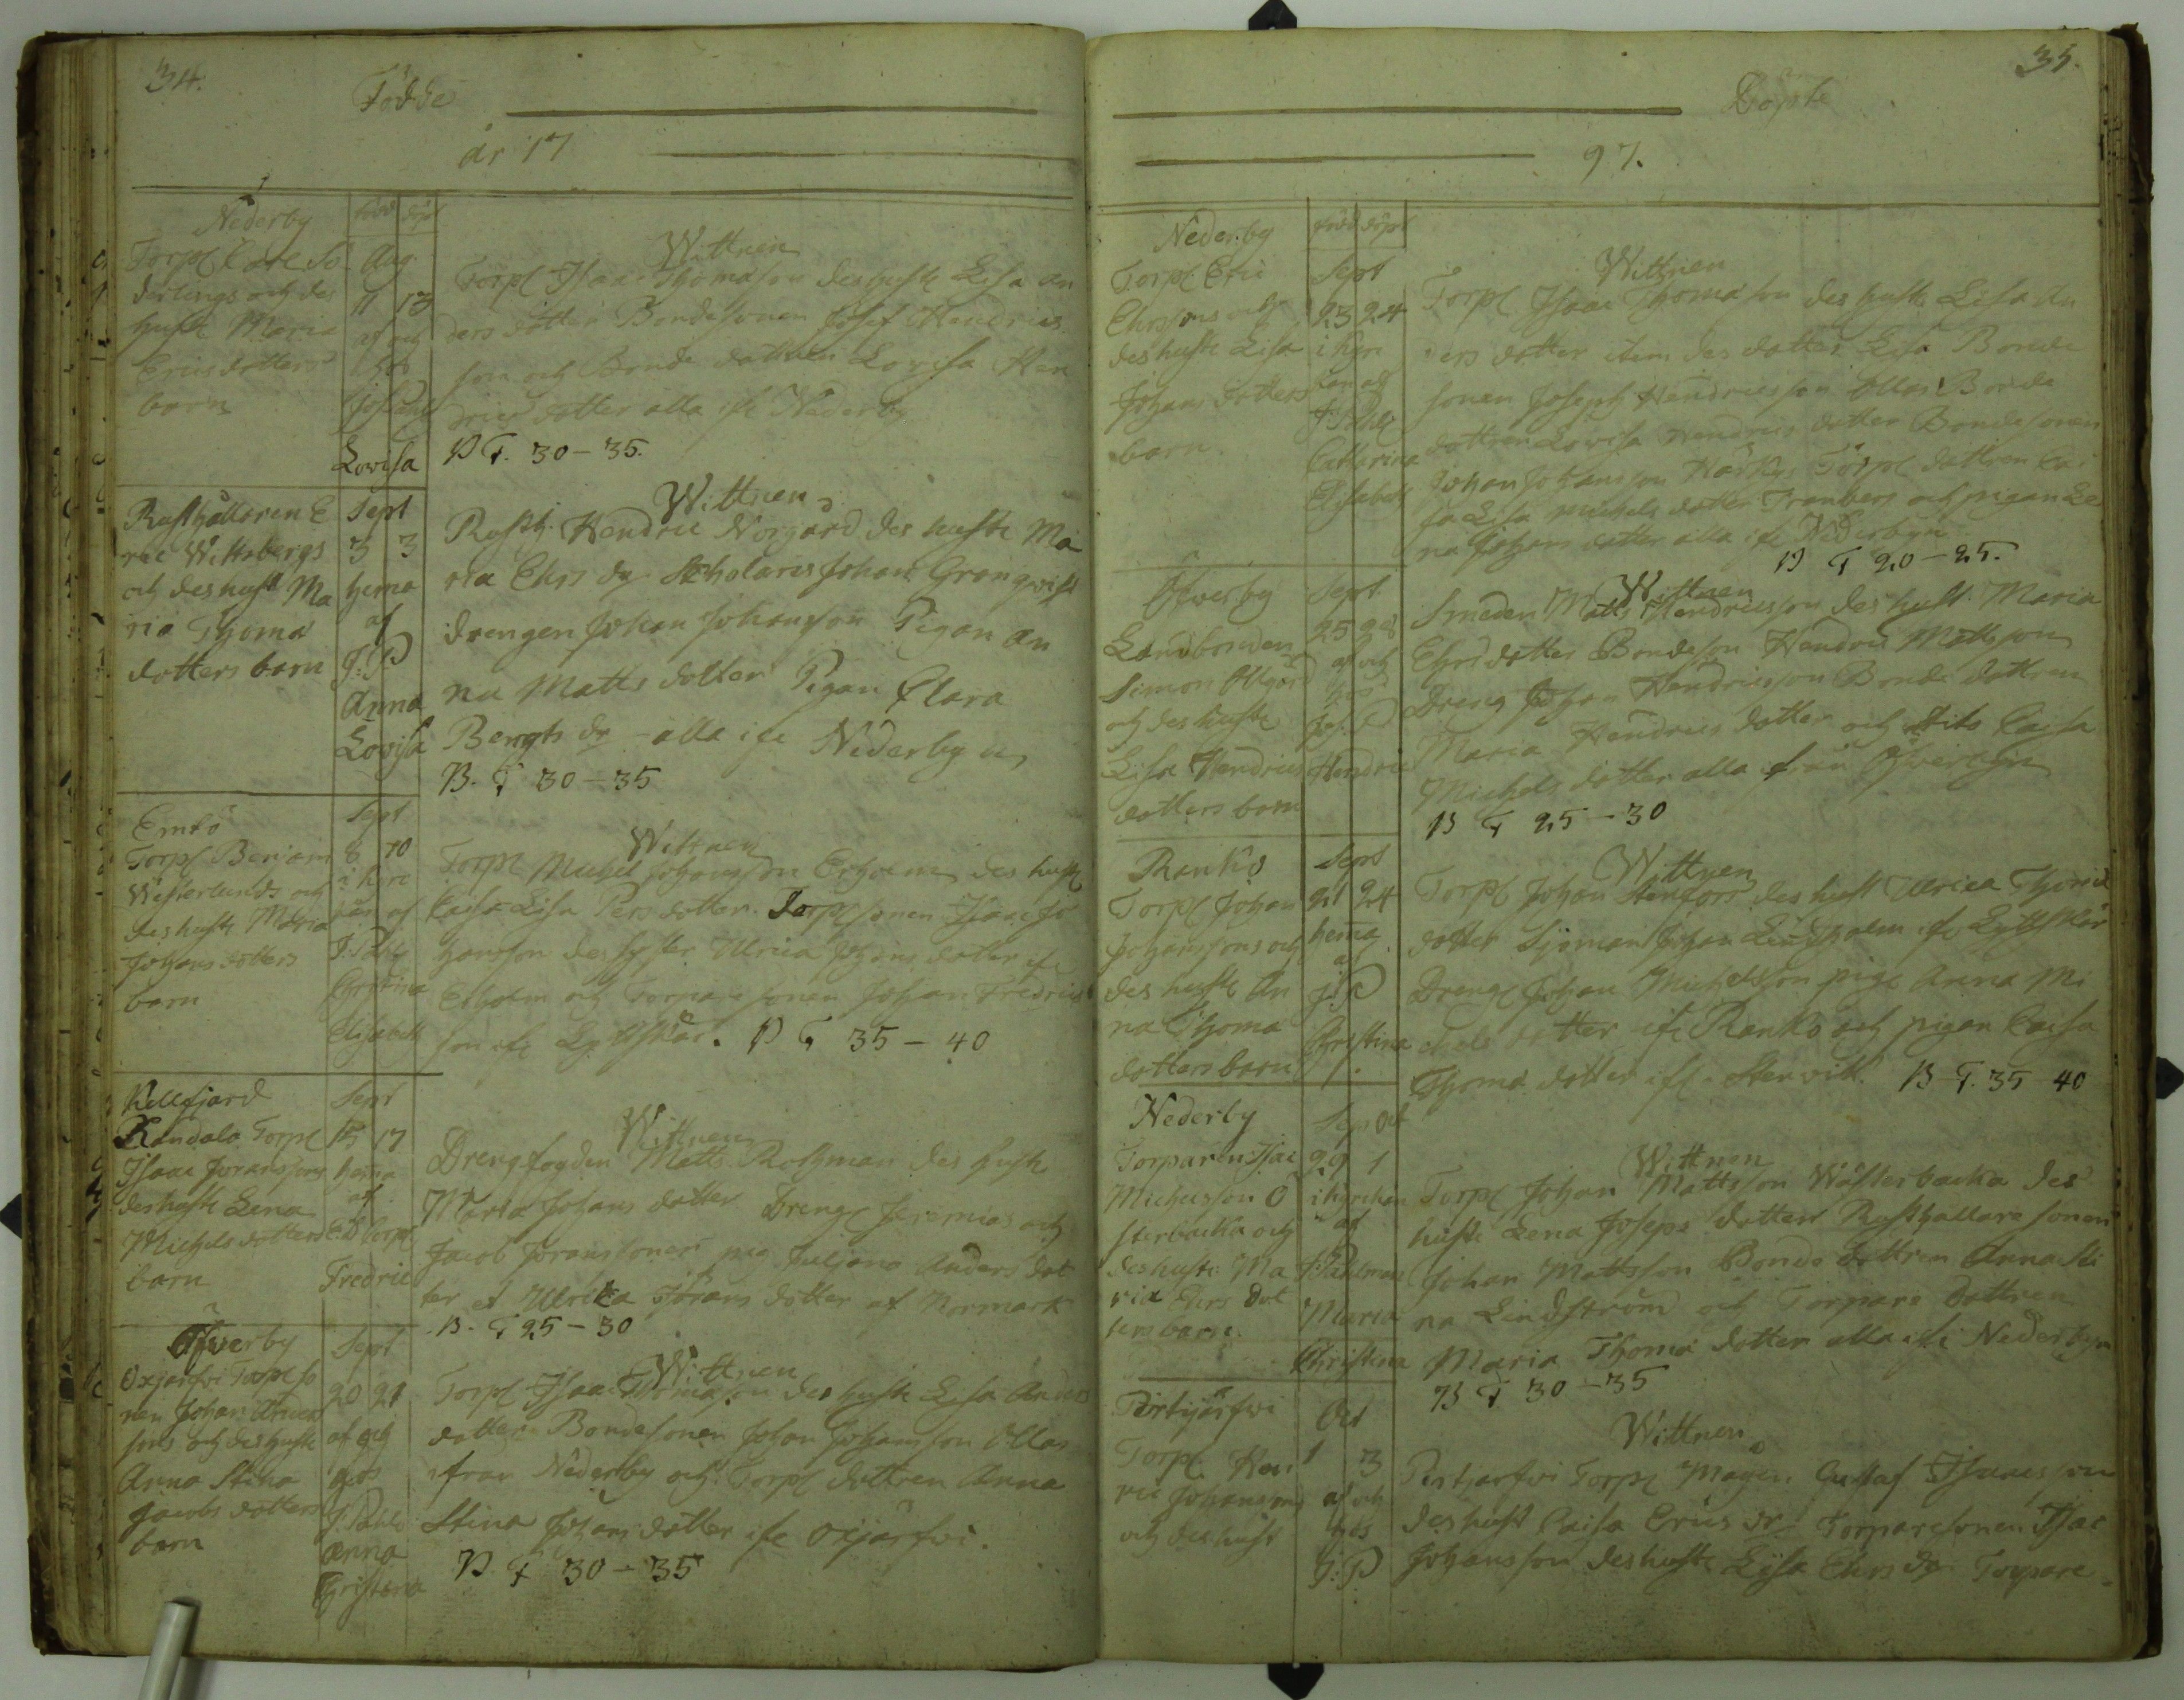 34.
Födde
år 17
Nederby
född döpt
Torpl Carl Sö
derlings och des
hustr Maria
Ericsdotters
barn
Aug
11 13
af och
hos
Lovisa
Wittnen
Torpl Isaac Thomasson des hustr Lisa An
ders dotter Bondesonen Josef Hendrics
son och Bonde dottren Lovisa Hen
drics dotter alla ifr Nederby
B F. 30-35.
Rusthållaren E
ric Wittbergs
och des hustr Ma
ria Thomæ
dotters barn
Sept
3 3
hema
af
J:P
Anna
Lovisa
Wittnen
Rusth. Hendric Norgård des hustr Ma
ria Ehrs dr Scholares Johan Granqwist
drengen Johan Johansson Pigan An
na Matts dotter Pigan Clara
Bengts dr - alla ifr Nederby
B. F 30-35
Emsö
Torpl Benjam
Westerlunds och
des hustr Maria
Johansdotters
barn
Sept
8 10
i kyrc
kan af
J. Pahl
Christina
Elisabeth
Wittnen
Torpl Michel Johansson Ekholm des hustr
Caisa Lisa Pers dotter. Torpl sonen Isaac Jo
hansson des syster Ulrica Johans dotter ifr
Ekholm och Torpare sonen Johan Fredrics
son ifr Lyttskär. B F 35-40
Kellfjärd
Randala Torpl
Isaac Joranssons
des hustr Lena
Michelsdotters
barn
Sept
15 17
hema
af
Fredric
Wittnen
Drengfogden Matts Rotzman des hustr
Maria Johans dotter Drengl Jeremias och
Jacob Joranssoner pig Juliana Anders dot
ter et Ulrika Jörans dotter af Normark
B. F 25-30
Öfverby
Oxjärfvi Torpl so
nen Johan Anders
sons och des hustr
Anna Stina
Jacobs dotters
barn
Sept
20 21
af och
hos
J. Pahl
Anna
Christina
Wittnen
Torpl Isaac Thomasson des hustr Lisa Anders
dotter Bondesonen Johan Johansson Ollas
ifrån Nederby och Torpl dottren Anna
Stina Johansdotter ifr Oxjärfvi.
B F 30-35
35.
Döpte
97.
Nederby
född döpt
Torpl. Eric
Ehrssons och
des hustr Lisa
Johans dotters
barn.
Sept
23 24
i kyrc
kan af
J: Pahl
Catharina
Elisabeth
Wittnen
Torpl Isaac Thomasson des hustr Lisa An
ders dotter item des dotter Lisa Bonde
sonen Joseph Hendricsson Ollas Bonde
dottren Lovisa Hendrics dotter Bondesonen
Johan Johansson Torpl dottren Cai
sa Lisa Michels dotter Tranberg och pigan Le
na Johans dotter alla ifr Nederbyn
B F 20-25.
Öfwerby
Landbonden
Simon Ollgård
och des hustr
Lisa Hendrics
dotters barn
Sept
25 28
af och
hos
Hendric
Wittnen
Smeden Matts Hendricsson des hustr. Maria
Ehrs dotter Bondeson Hendric Mattsson
Dreng Johan Hendricsson Bonde dottren
Maria Hendrics dotter och Caisa
Michels dotter alla från Öfwerbyn
B F 25-30
Rankö
Torpl Johan
Johanssons och
des hustr An
na Thomæ
dotters barn
Sept
21 24
hema
af
J:P
Christina
Wittnen
Torpl Johan Stenfors des hust Ulrica Thomæ
dotter Sjöman Johan Lindholm ifr Lyttskär
Drengl Johan Michelsson pige Anna Mi
chels dotter ifr Rankö och pigan Caisa
Thomæ dotter ifr Stenvik. B F. 35 40
Nederby
Torparen Isac
Michelsson Ö
sterbacka och
des hustr Ma
ria Ehrs dot
ters barn.
Sep Oct
29 1
i kyrckan
af
J: Pahlman
Maria
Christina
Wittnen
Torpl Johan Mattsson Wästerbacka des
hustr Lena Joseps dotter Rusthållare sonen
Johan Mattsson Bonde dottren Anna Sti
na Lindström och Torpare dottren
Maria Thomæ dotter alla ifr Nederbyn
B F 30-35
Pertijärfwi
Torpl. Hen
ric Johanssons
och des hust
Oct
1 3
af och
hos
J:P
Wittnen
Pertjarfwi Torpl Magn. Gustaf Isaacsson
des hust Caisa Erics dr Torparesonen Isac
Johansson des hustr Lisa Ehrs dr Torpare